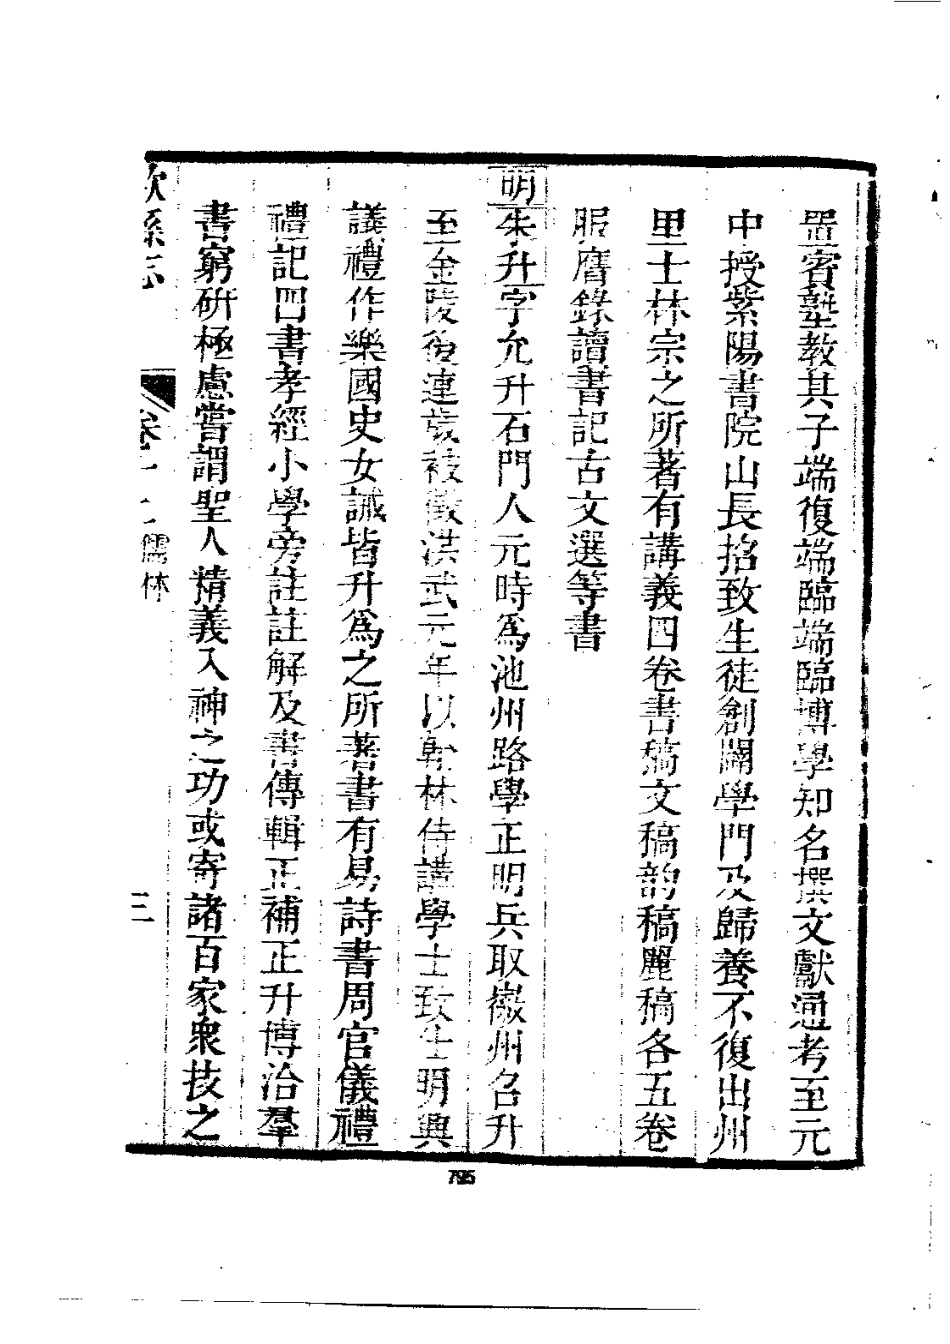 置賓塾教其子端復端臨端臨博學知名撰文獻通考至元
中授紫陽書院山長招致生徒創闢學門及歸養不復出州
里士林宗之所著有講義四卷書稿文稿韵稿麗稿各五卷
服膺錄讀書記古文選等書
明朱升字允升石門人元時爲池州路學正明兵取徽州召升
至金陵後連歲被徵洪武元年以翰林侍講學士致仕明興
議禮作樂國史女誡皆升爲之所著書有易詩書周官儀禮
禮記四書孝經小學旁註註解及書傳輯正補正升博洽羣
書窮硏極慮嘗謂聖人精義入神之功或寄諸百家衆技之
歙縣志 卷十 儒林 三
795